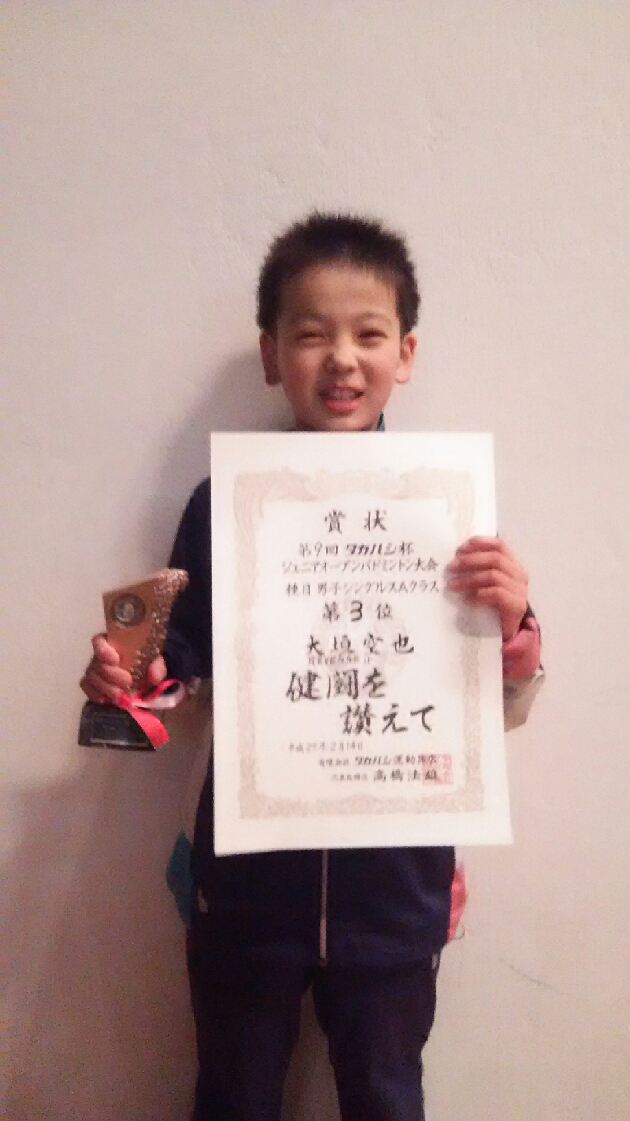 賞状
第9回 タカハシ杯
ジュニアオープンバドミントン大会
種目 男子シングルスAクラス
第3位
大垣空也
健闘を
讃えて
平成27年2月14日
有限会社 タカハシ運動具店
代表取締役 高橋法雄